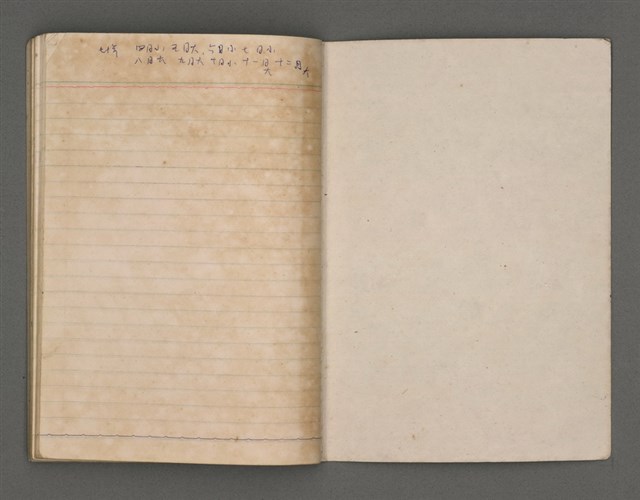 七年 四月小 五月大 六月小 七月小
八月大 九月大 十月小 十一月大 十二月大